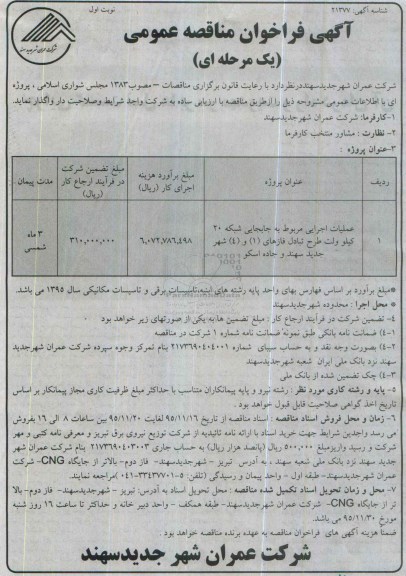 شناسه آگهی: ۲۱۳۷۷
نوبت اول
شرکت عمران شهر جدید سهند
آگهی فراخوان مناقصه عمومی
(یک مرحله ای)
شرکت عمران شهرجدیدسهنددرنظردارد با رعایت قانون برگزاری مناقصات – مصوب۱۳۸۳ مجلس شورای اسلامی ، پروژه
ای با اطلاعات عمومی مشروحه ذیل را ازطریق مناقصه با ارزیابی ساده به شرکت واجد شرایط وصلاحیت دار واگذار نماید.
۱-کارفرما: شرکت عمران شهرجدیدسهند
۲- نظارت : مشاور منتخب کارفرما
۳-عنوان پروژه :
ردیف
عنوان پروژه
مبلغ برآورد هزینه اجرای کار (ریال)
مبلغ تضمین شرکت در فرآیند ارجاع کار (ریال)
مدت پیمان
۱
عملیات اجرایی مربوط به جابجایی شبکه ۲۰
کیلو ولت طرح تبادل فازهای (۱) و (۴) شهر
جدید سهند و جاده اسکو
۶,۰۷۲,۷۸۶,۴۹۸
۳۱۰,۰۰۰,۰۰۰
۳ ماه شمسی
*مبلغ برآورد بر اساس فهارس بهای واحد پایه رشته های ابنیه،تاسیسات برقی و تاسیسات مکانیکی سال ۱۳۹۵ می باشد.
* محل اجرا : محدوده شهرجدیدسهند
۴- تضمین شرکت در فرآیند ارجاع کار : مبلغ تضمین ها به یکی از صورتهای زیر خواهد بود
۴-۱) ضمانت نامه بانکی طبق نمونه ضمانت نامه شماره ۱ شرکت در مناقصه
۴-۲) بصورت وجه نقد و به حساب سیبای شماره ۲۱۷۳۶۹۰۴۰۴۰۰۱ بنام تمرکز وجوه سپرده شرکت عمران شهرجدید
سهند نزد بانک ملی ایران شعبه شهرجدیدسهند
۴-۳) چک تضمین شده از بانک ملی
۵- پایه و رشته کاری مورد نظر : رشته نیرو و پایه پیمانکاران متناسب با حداکثر مبلغ ظرفیت کاری مجاز پیمانکار بر اساس
تاریخ اخذ گواهی صلاحیت قابل قبول خواهد بود .
۶- زمان و محل فروش اسناد مناقصه : اسناد مناقصه از تاریخ ۹۵/۱۱/۱۶ لغایت ۹۵/۱۱/۲۰ بین ساعات ۸ الی ۱۶ بفروش
می رسد واجدین شرایط جهت خرید اسناد با ارائه نامه تائیدیه از شرکت توزیع نیروی برق تبریز و معرفی نامه کتبی و مهر
شرکت و رسید واریزمبلغ ۵۰۰,۰۰۰ ریال (پانصد هزار ریال) به حساب جاری ۲۱۷۳۶۹۰۴۰۳۰۰۳ بنام شرکت عمران شهر
جدید سهند نزد بانک ملی شعبه سهند ، به آدرس تبریز – شهرجدیدسهند- فاز دوم- بالاتر از جایگاه CNG- شرکت
عمران شهرجدیدسهند- طبقه اول - واحد پیمان و رسیدگی (تلفن: ۵-۳۳۴۳۷۷۰۱-۰۴۱) مراجعه نمایند.
۷- محل و زمان تحویل اسناد تکمیل شده مناقصه : محل تحویل اسناد به آدرس: تبریز – شهرجدیدسهند- فاز دوم- بالا
تر از جایگاه CNG- شرکت عمران شهرجدیدسهند- طبقه همکف - واحد دبیر خانه و حداکثر تا ساعت ۱۶ روز شنبه
مورخ ۹۵/۱۱/۳۰ می باشد.
ضمنا هزینه آگهی های فراخوان مناقصه به عهده برنده مناقصه خواهد بود .
شرکت عمران شهر جدیدسهند